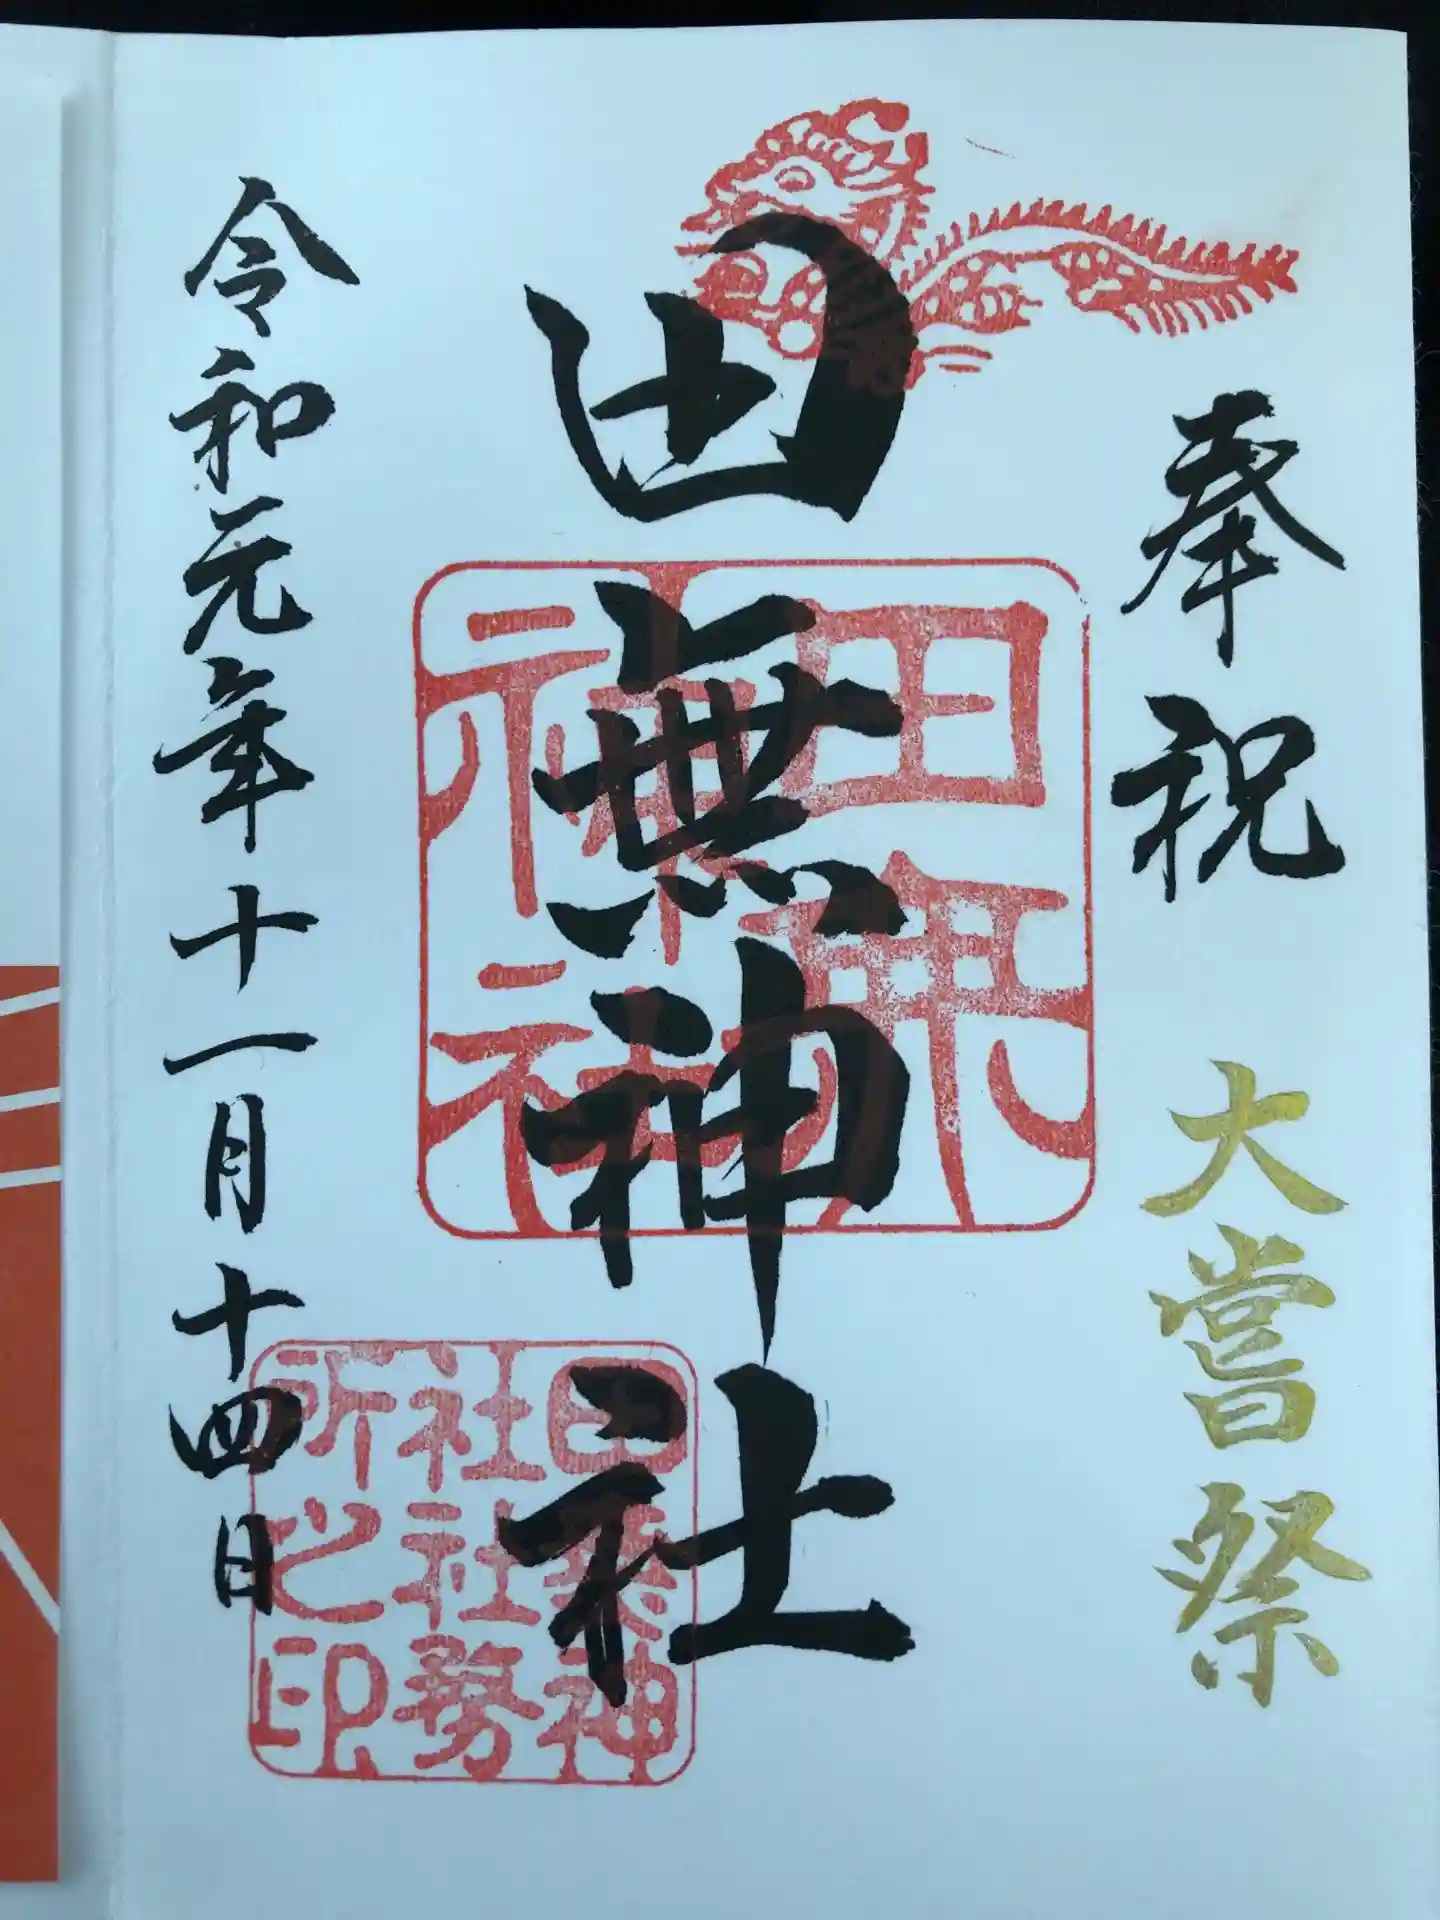 奉祝 大嘗祭
田無神社
令和元年十一月十四日
田無
神社
田無神
社社務
所之印